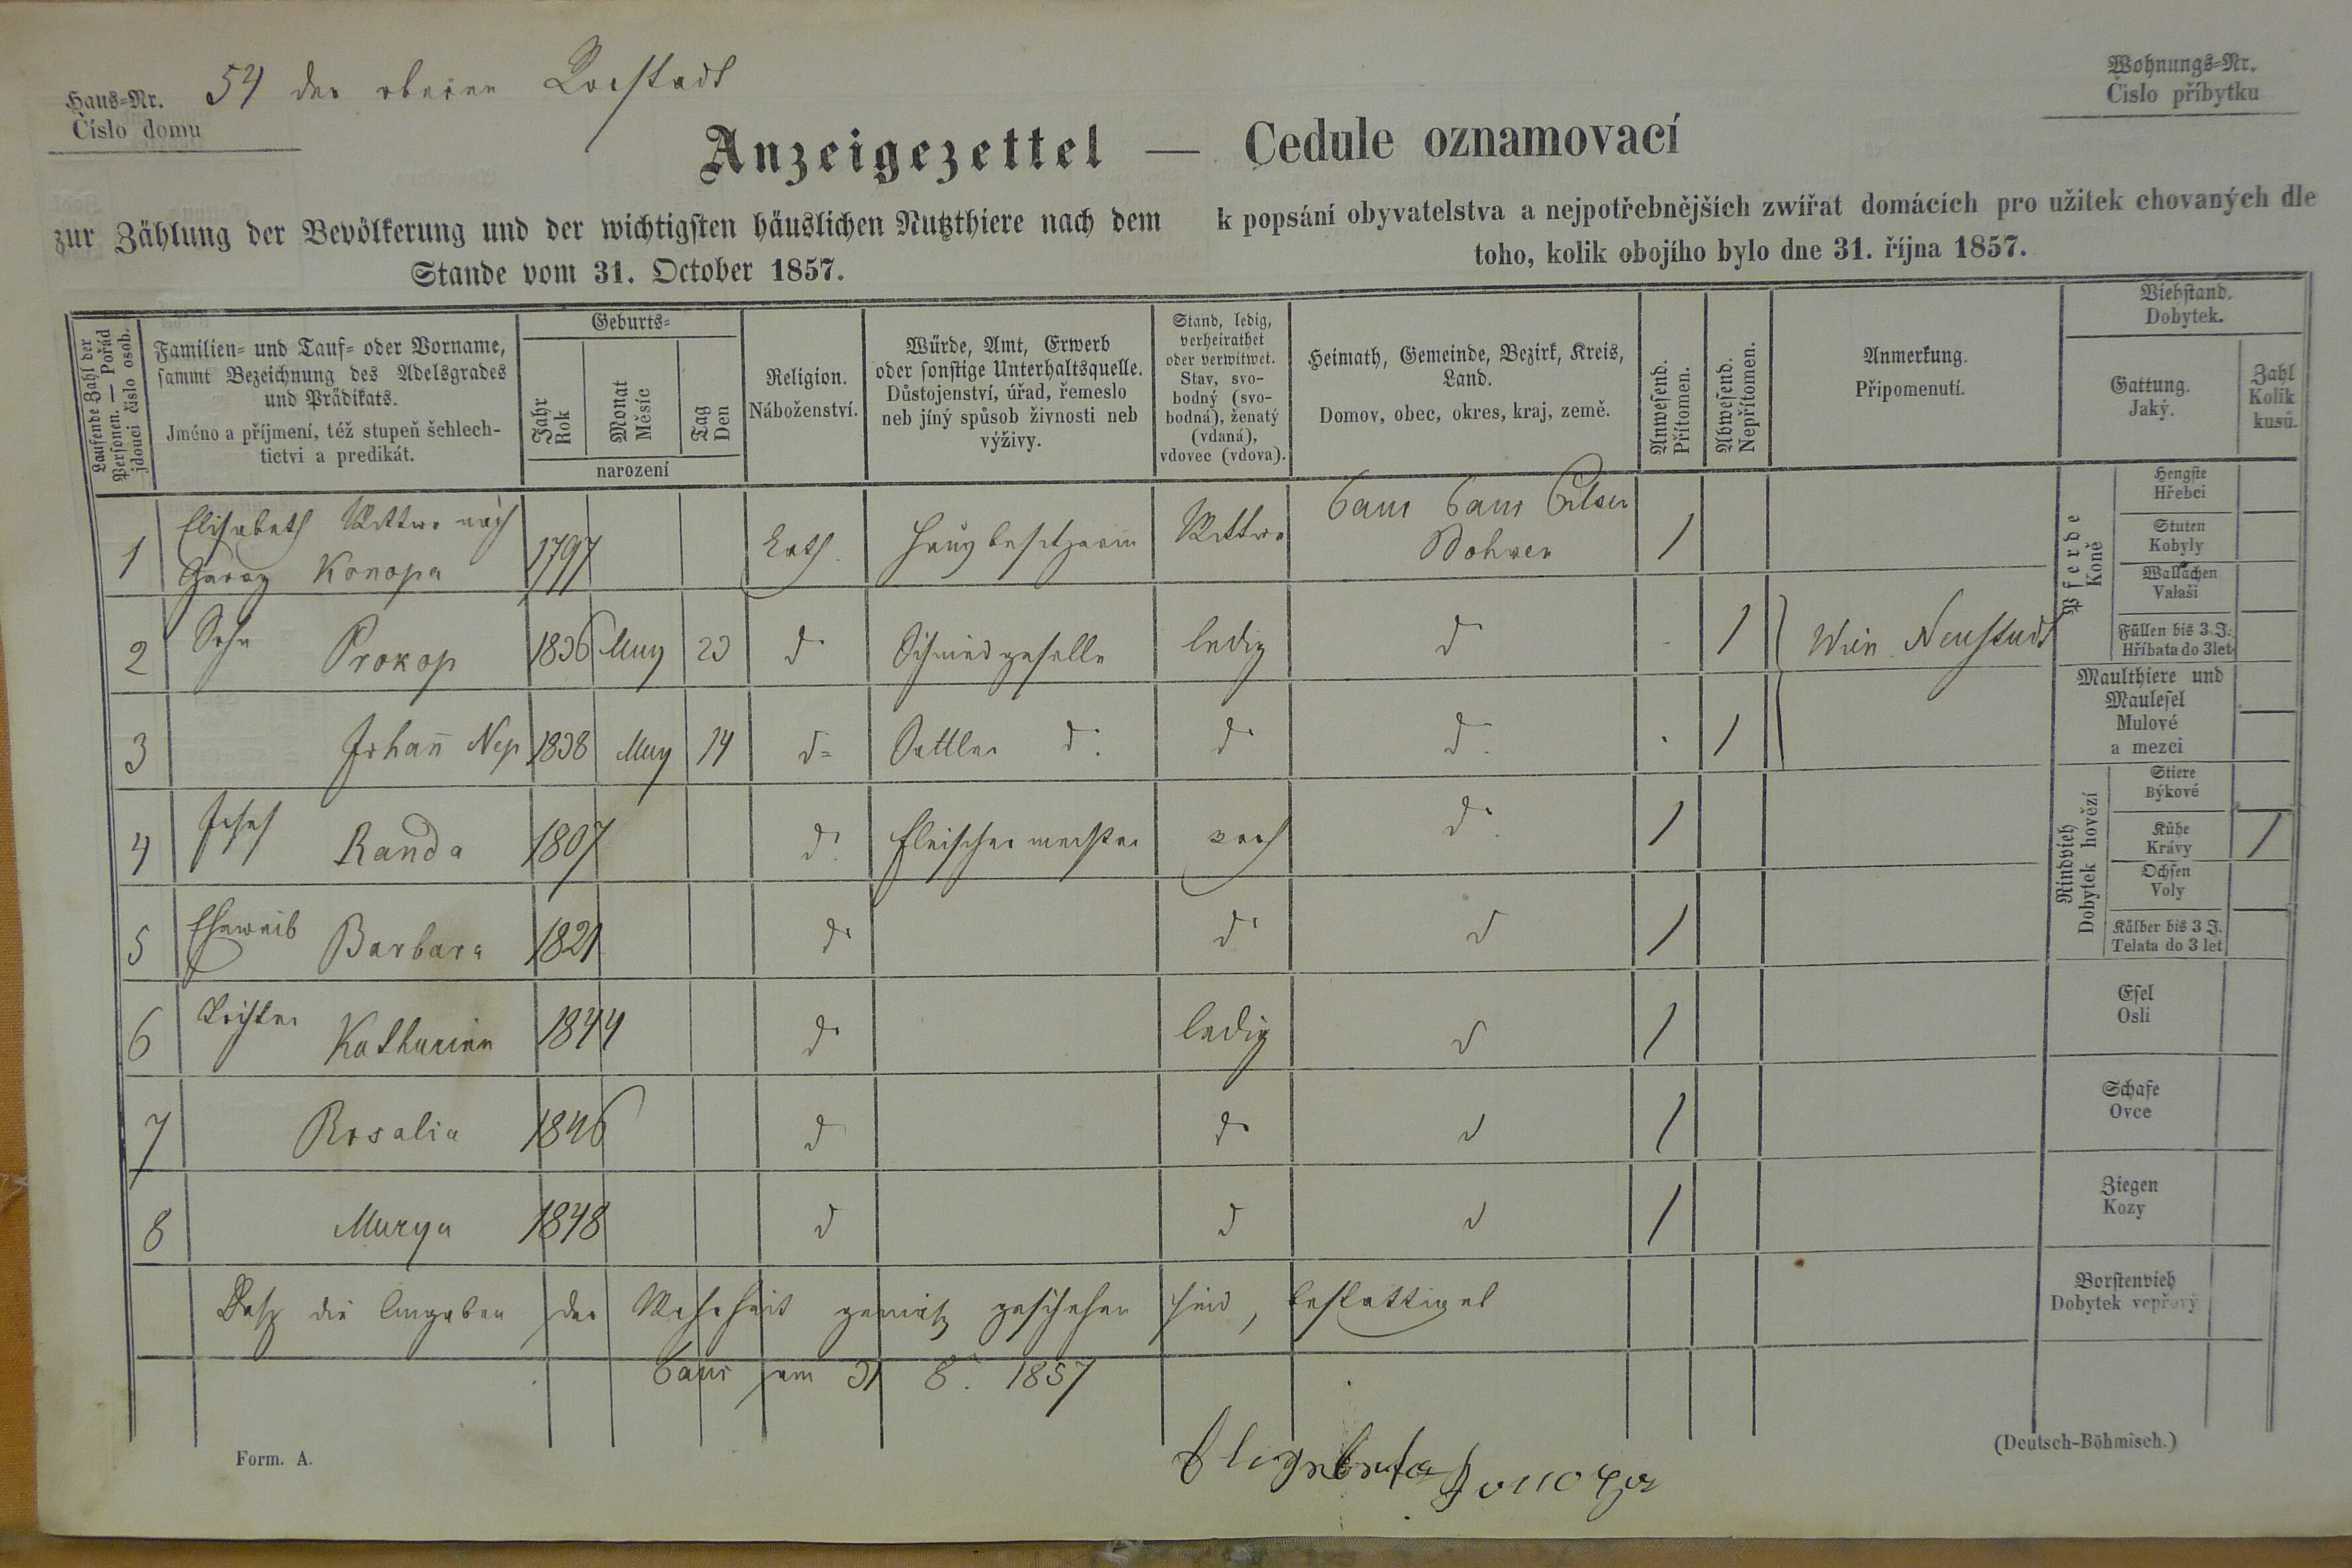 54 der oberen Vorstadt
Haus-Nr.
Číslo domu
Wohnungs-Nr.
Číslo příbytku
Anzeigezettel — Cedule oznamovací
zur Zählung der Bevölkerung und der wichtigsten häuslichen Nutzthiere nach dem
Stande vom 31. October 1857.
k popsání obyvatelstva a nejpotřebnějších zwířat domácích pro užitek chovaných dle
toho, kolik obojího bylo dne 31. října 1857.
Laufende Zahl der
Personen. — Pořád
jdoucí číslo osob.
Familien- und Tauf- oder Vorname,
sammt Bezeichnung des Adelsgrades
und Prädikats.
Jméno a příjmení, též stupeň šchlech-
tictvi a predikát.
Geburts-
Jahr
Rok
Monat
Měsíc
Tag
Den
narození
Religion.
Náboženství.
Würde, Amt, Erwerb
oder sonstige Unterhaltsquelle.
Důstojenství, úřad, řemeslo
neb jíný spůsob živnosti neb
výživy.
Stand, ledig,
verheirathet
oder verwitwet.
Stav, svo-
bodný (svo-
bodná), ženatý
(vdaná),
vdovec (vdova).
Heimath, Gemeinde, Bezirk, Kreis,
Land.
Domov, obec, okres, kraj, země.
Anwesend.
Přítomen.
Abwesend.
Nepřítomen.
Anmerkung.
Připomenutí.
Viehstand.
Dobytek.
Gattung.
Jaký.
Zahl
Kolik
kusů.
1 Elisabeth Wittwe nach
Konopa 1797 Kath. Hausbesitzerin Wittwe Taus Taus Pilsen
Böhmen /
2 Sohn Prokop 1836 May 23 dº Schmiedgeselle ledig dº / Wien Neustadt
3 Johann Nep 1838 May 14 dº Sattler dº dº dº /
4 Josef Randa 1807 dº Fleischermeister verh dº /
5 Eheweib Barbara 1821 dº dº d /
6 Tochter Katharina 1844 dº ledig d /
7 Rosalia 1846 d dº d /
8 Marya 1848 d d d /
Pferde
Koně
Hengste
Hřebci
Stuten
Kobyly
Wallachen
Valaši
Füllen bis 3 J.
Hříbata do 3 let
Maulthiere und
Maulesel
Mulové
a mezci
Rindvieh
Dobytek hovězí
Stiere
Býkové
Kühe
Krávy /
Ochsen
Voly
Kälber bis 3 J.
Telata do 3 let
Esel
Osli
Schafe
Ovce
Ziegen
Kozy
Borstenvieh
Dobytek vepřový
Dass die Angaben der Wahrheit gemäss geschehen sind, bestättiget
Taus am 31 8. 1857
Form. A.
(Deutsch-Böhmisch.)